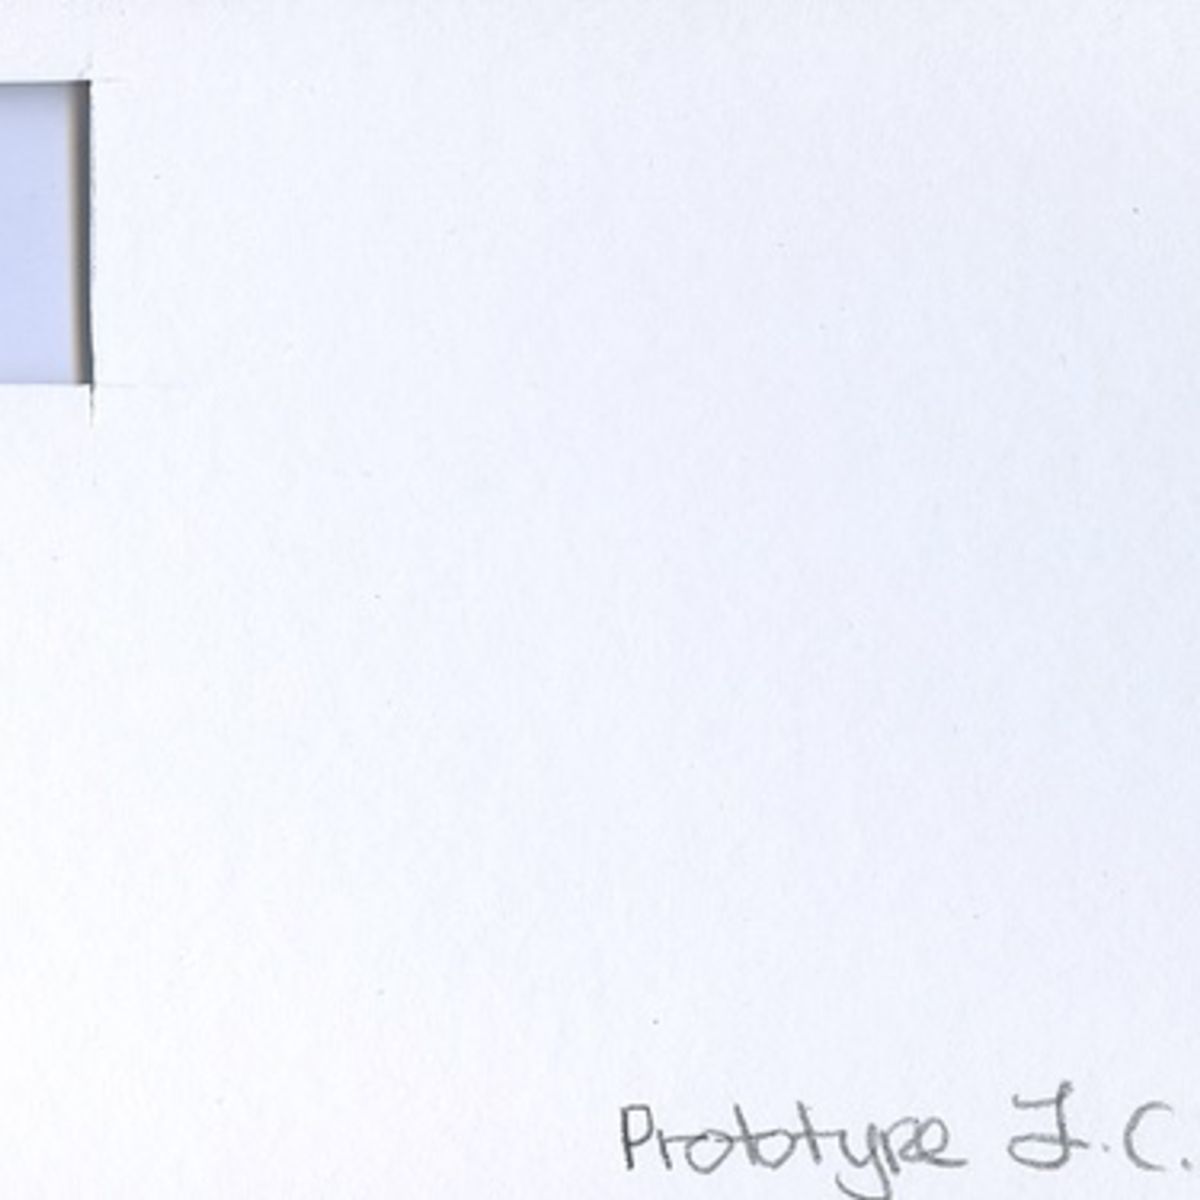 Prototype J.C.